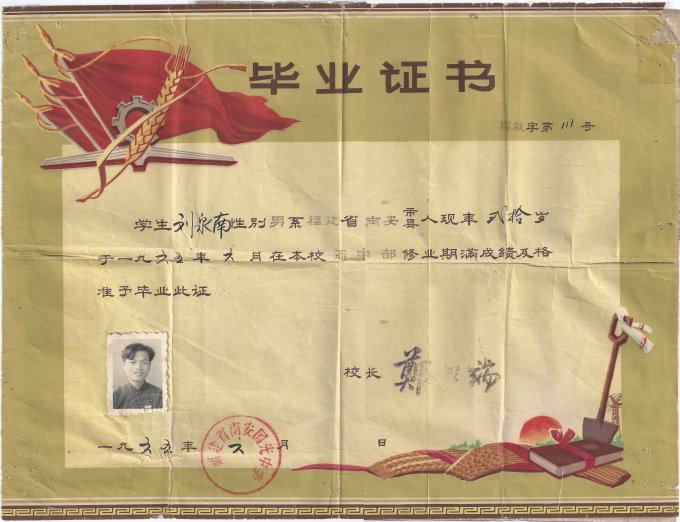 毕业证书
教字第 111 号
学生刘泉南性别男系福建省南安市县人现年弍拾岁
于一九六五年六月在本校高中部修业期满成绩及格
准予毕业此证
校长 鄭 瑞
一九六五年六月 日
福建省南安国光中学